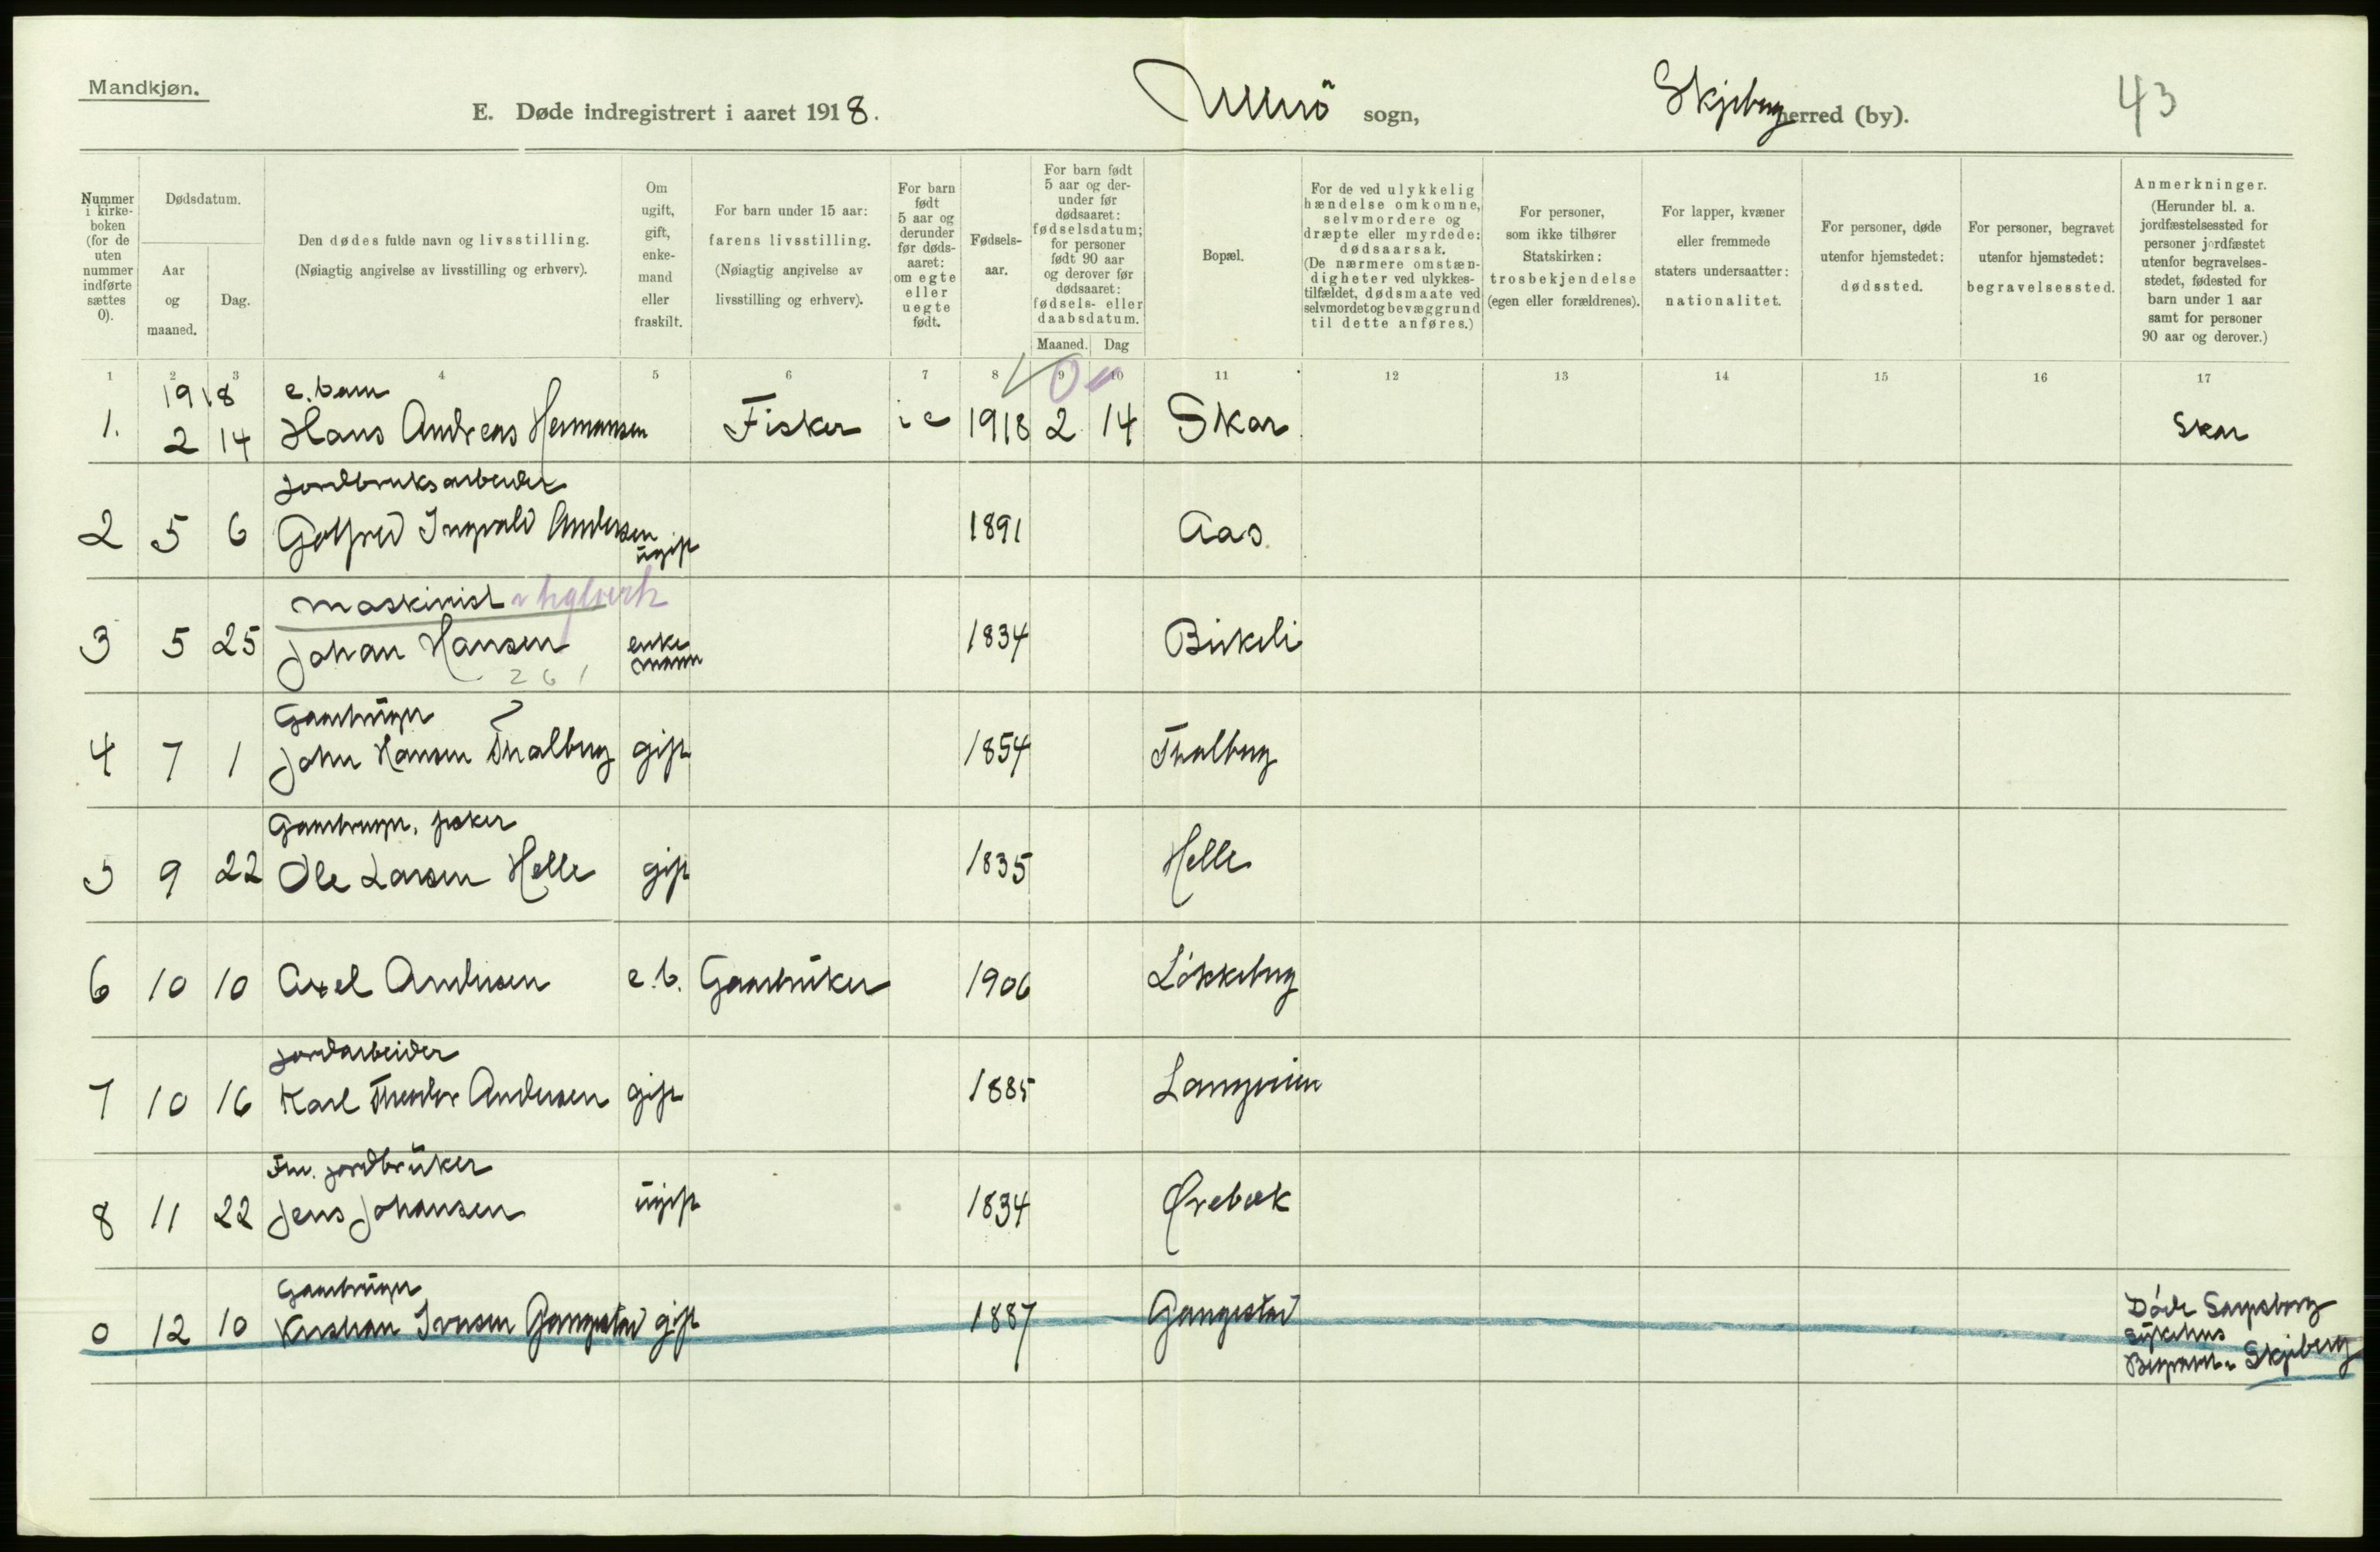 Mandkjøn.
E. Døde indregistrert i aaret 1918.
Ullerö sogn,
Skjeberg herred (by).
43
Nummer i kirkeboken (for de uten nummer indførte sættes 0).
Dødsdatum.
Aar og maaned.
Dag.
Den dødes fulde navn og livsstilling.
(Nøiagtig angivelse av livsstilling og erhverv).
Om ugift, gift, enkemand eller fraskilt.
For barn under 15 aar: farens livsstilling.
(Nøiagtig angivelse av livsstilling og erhverv).
For barn født 5 aar og derunder før dødsaaret: om egte eller uegte født.
Fødselsaar.
For barn født 5 aar og derunder før dødsaaret: fødselsdatum; for personer født 90 aar og derover før dødsaaret: fødsels- eller daabsdatum.
Maaned. Dag
Bopæl.
For de ved ulykkelig hændelse omkomne, selvmordere og dræpte eller myrdede: dødsaarsak.
(De nærmere omstændigheter ved ulykkestilfældet, dødsmaate ved selvmordet og bevæggrund til dette anføres.)
For personer, som ikke tilhører Statskirken: trosbekjendelse (egen eller forældrenes).
For lapper, kvæner eller fremmede staters undersaatter: nationalitet.
For personer, døde utenfor hjemstedet: dødssted.
For personer, begravet utenfor hjemstedet: begravelsessted.
Anmerkninger.
(Herunder bl. a. jordfæstelsessted for personer jordfæstet utenfor begravelsesstedet, fødested for barn under 1 aar samt for personer 90 aar og derover.)
1 2 3 4 5 6 7 8 9 10 11 12 13 14 15 16 17
1918 e. barn
1. 2 14 Hans Andreas Hermansen Fisker i e 1918 2 14 Skar Skar
Jordbruksarbeider
2 5 6 Gotfred Ingvald Andersen ugift 1891 Aas
maskinist
3 5 25 Johan Hansen enkemann 1834 Birkeli
261
Gaardbruger
4 7 1 John Hansen Thalberg gift 1854 Thalberg
Gaardbruger, fisker
5 9 22 Ole Larsen Helle gift 1835 Helle
6 10 10 Axel Andersen e.b. Gaardbruker 1906 Løkkeberg
jordarbeider
7 10 16 Karl Theodor Andersen gift 1885
Fhv. jordbruker
8 11 22 Jens Johansen ugift 1834 Ørebæk
Gaardbruger
0 12 10 Kristian Iversen Gangestad gift 1887 Gangestad
Døde Sarpsborg
Sykehus
Begravet i Skjeberg